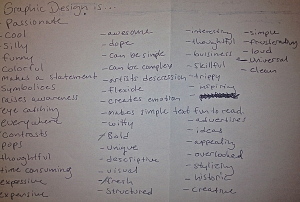 Graphic Design is...
- Passionate
- Cool
- Silly
- funny
- Colorful
- makes a statement
- Symbolices
- raises awareness
- eye catching
- everywhere
- Contrasts
- pops
- thoughtful
- time consuming
- expressive
- expansive
- awesome
- dope
- can be simple
- can be complex
- artists descression
- flexible
- creates emotion
- makes simple text fun to read
- witty
- Bold
- Unique
- descriptive
- visual
- fresh
- Structured
- interesting
- thoughtful
- business
- skillful
- trippy
- inspiring
- advertises
- ideas
- appealing
- overlooked
- stylizing
- historic
- creative
- simple
- frusterating
- loud
- universal
- clean